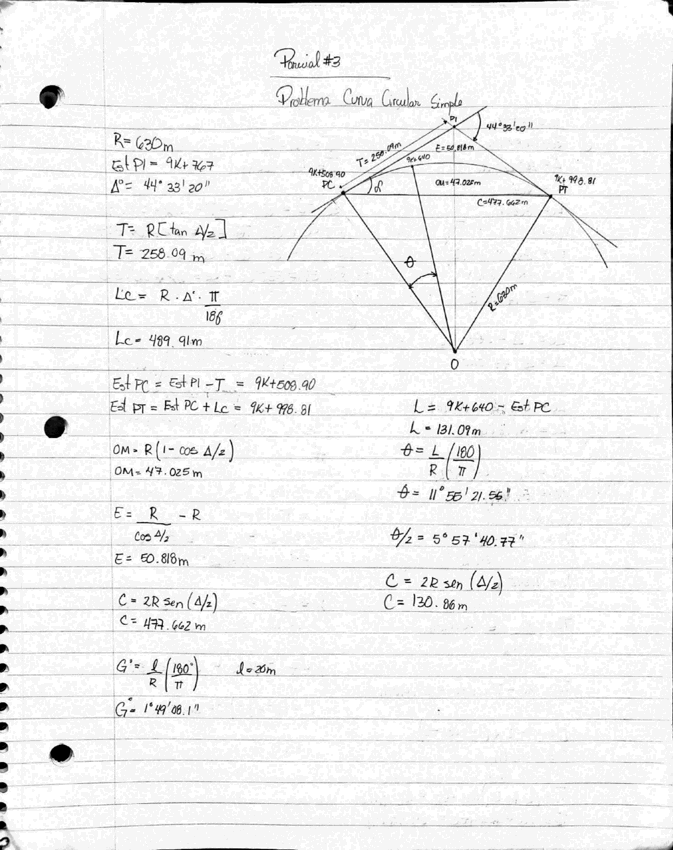 Parcial #3
Problema Curva Circular Simple
R= 630m
Est PI = 9K+767
Δ°= 44° 33' 20"
T= R[tan Δ/2]
T= 258.09 m
Lc = R · Δ° · π
180
Lc= 489.91m
Est PC = Est PI - T = 9K+508.90
Est PT = Est PC + Lc = 9K+998.81
OM= R(1-cos Δ/2)
OM= 47.025 m
E = R - R
cos Δ/2
E= 50.818m
C = 2R sen (Δ/2)
C= 477.662 m
G°= l (180°) l=20m
R π
G°= 1°49'08.1"
PI
44°33'20"
T= 258.09m
E=50,818m
9K+640
9K+508.90
PC
α
OM=47.025m
C=477.662m
9K+998.81
PT
θ
R=630m
O
L= 9K+640 - Est PC
L= 131.09m
θ= L (180)
R π
θ= 11° 55' 21.56"
θ/2 = 5° 57' 40.77"
C = 2R sen (Δ/2)
C= 130.86m